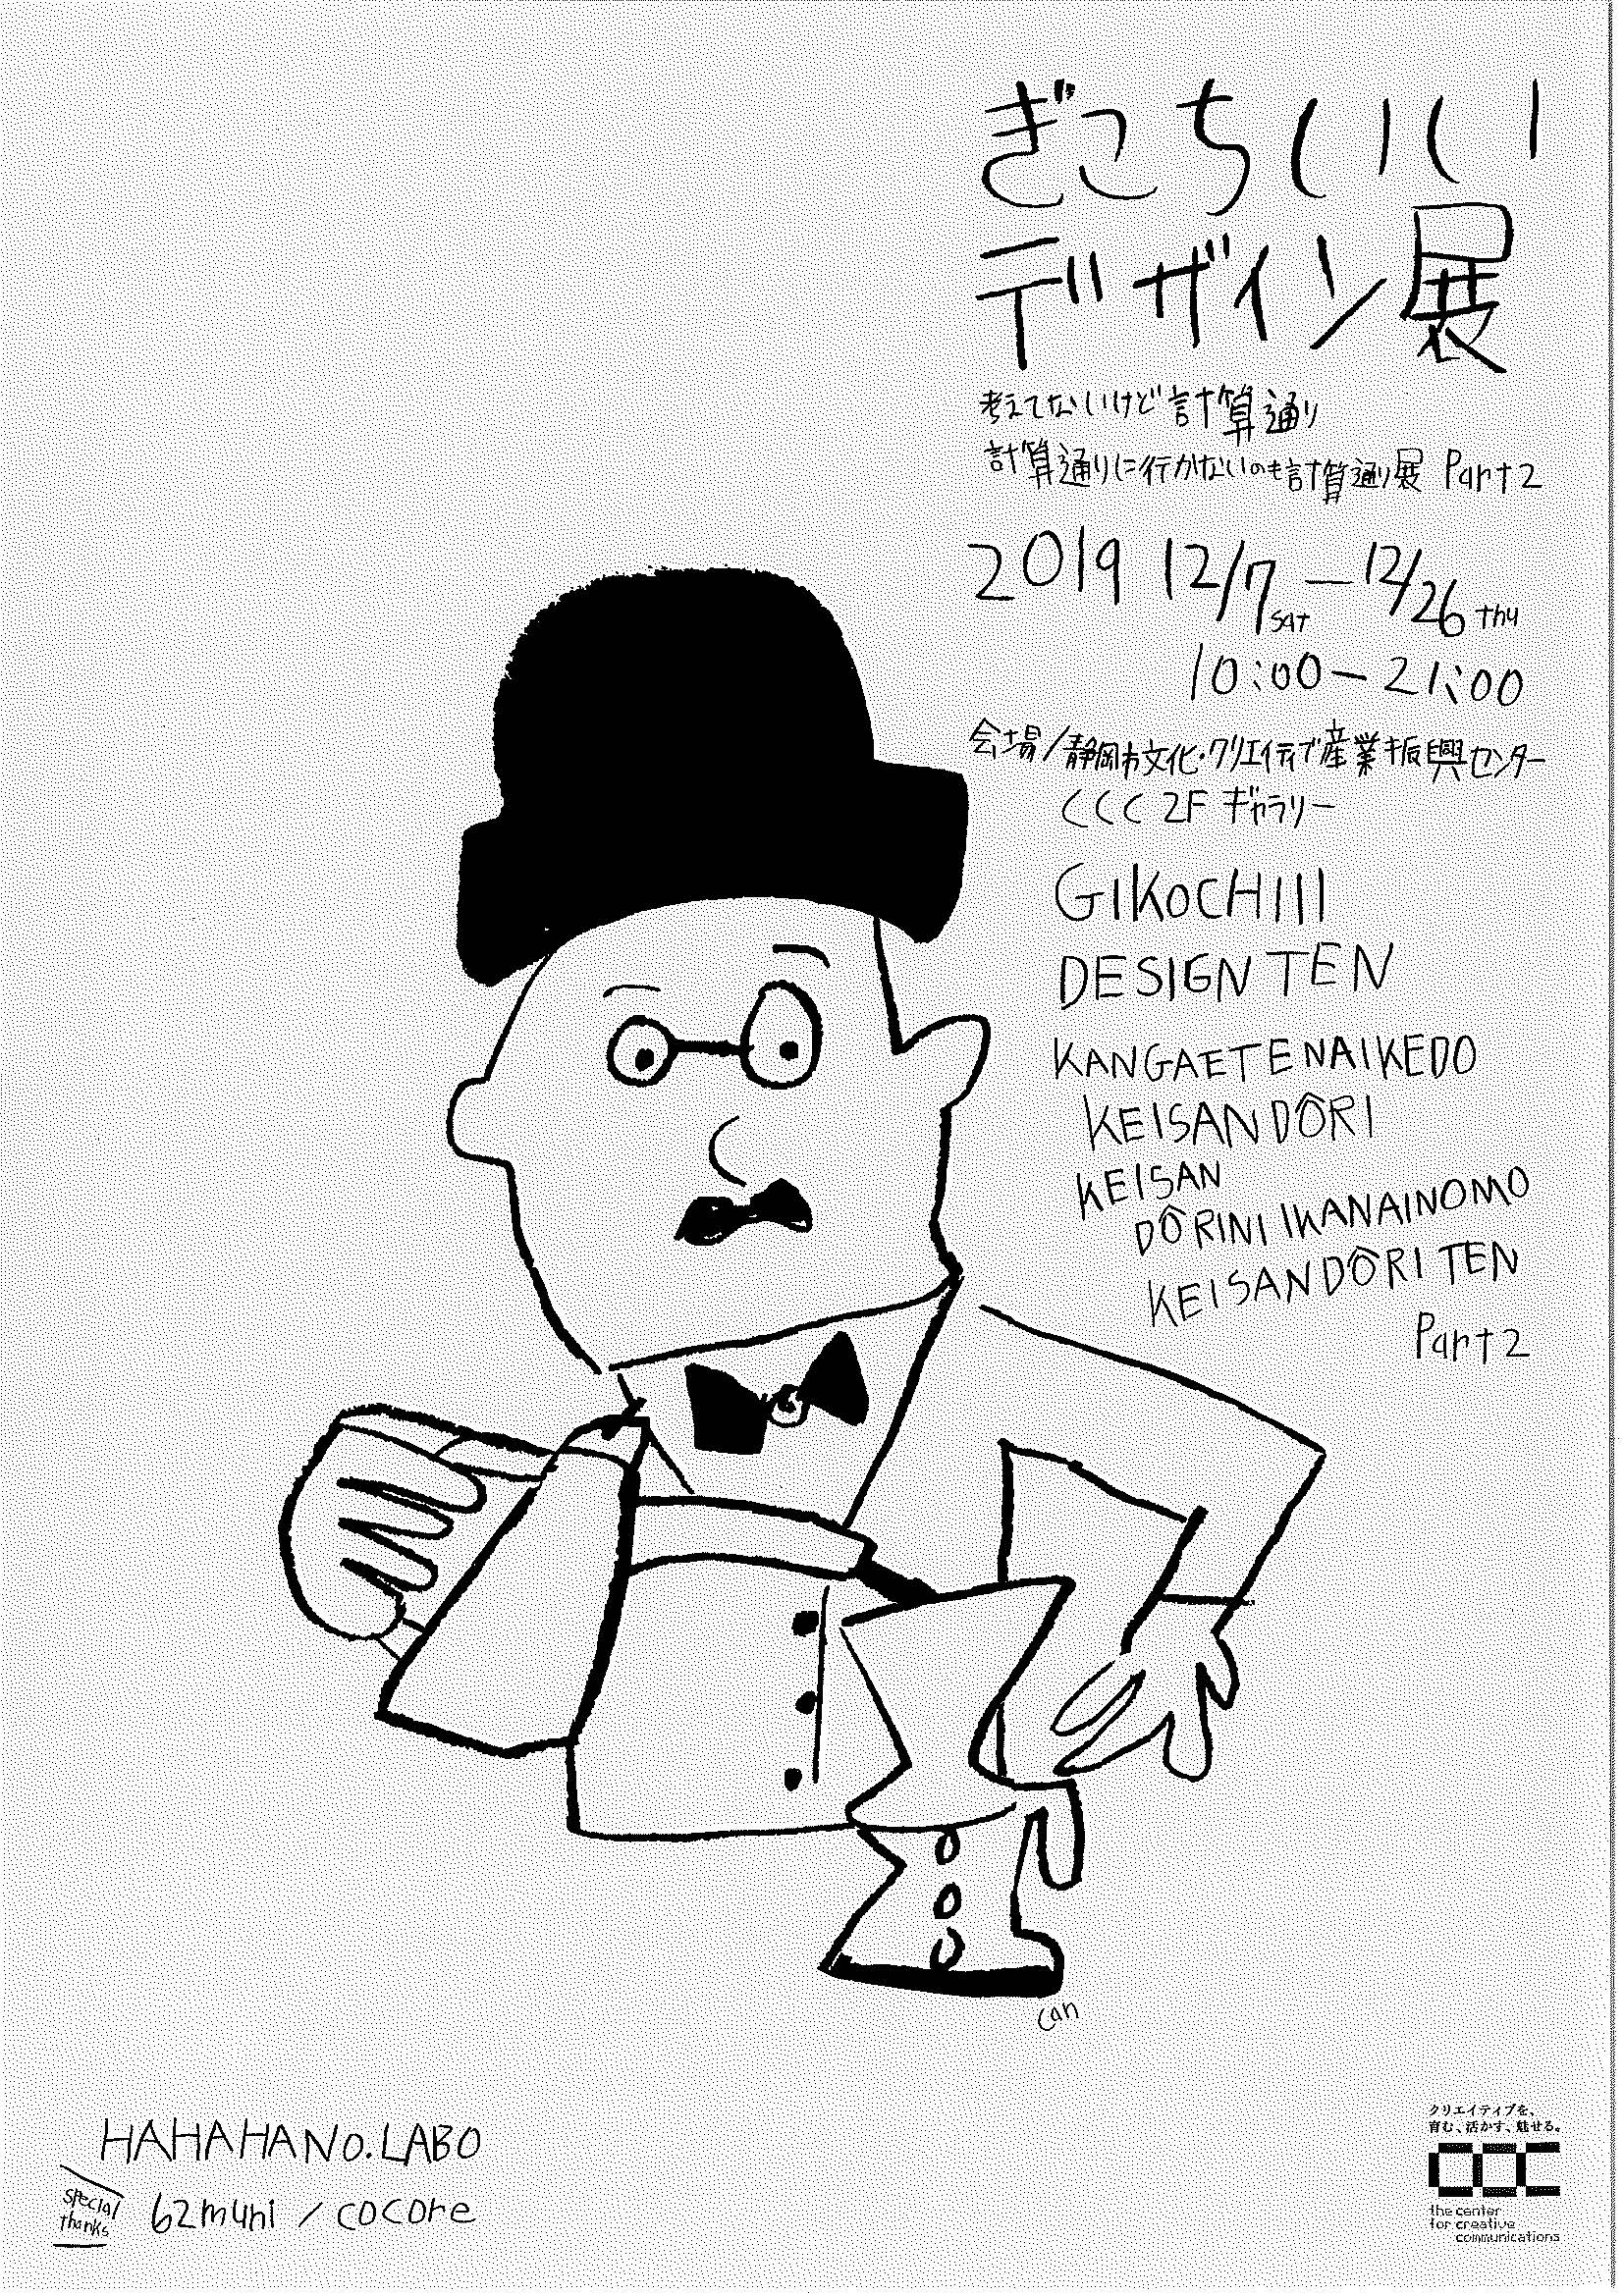 ぎこちいい
デザイン展
考えてないけど計算通り
計算通りに行かないのも計算通り展 Part2
2019 12/7 SAT — 12/26 thu
10:00 — 21:00
会場/静岡市文化・クリエイティブ産業振興センター
CCC 2F ギャラリー
GIKOCHIII
DESIGN TEN
KANGAETENAIKEDO
KEISANDÔRI
KEISAN
DÔRINI IKANAINOMO
KEISANDÔRI TEN
Part2
can
HAHAHANO.LABO
special
thanks
62muni / cocore
クリエイティブを、
育む、活かす、魅せる。
CCC
the center
for creative
communications